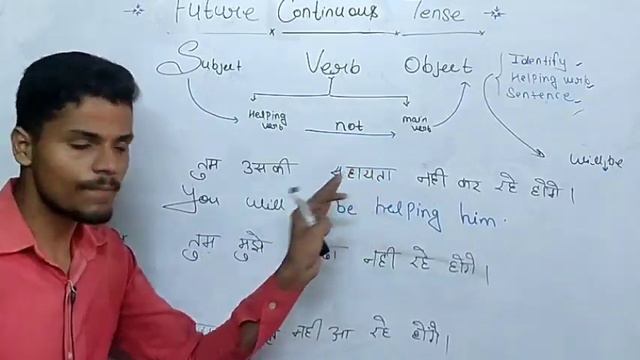 Future Continuous Tense
Subject Verb Object
Helping verb not main verb
Identify
Helping verb
Sentence
Will be
तुम उसकी सहायता नही कर रहे होगे।
You will be helping him.
तुम मुझे नही रहे होगे।
नही आ रहे होगे।